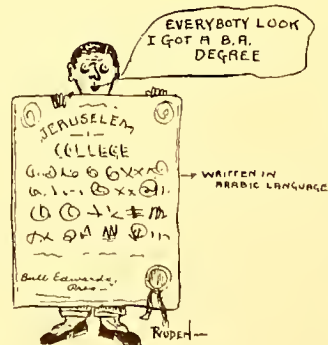 EVERYBOTY LOOK
I GOT A B.A.
DEGREE
JERUSELEM
COLLEGE
WRITTEN IN
ARABIC LANGUAGE
Bull Edwards,
Pres—
RUDEN—